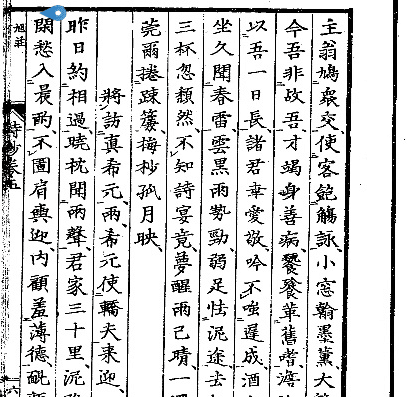 主翁鳩衆交使客飽觴詠小窓翰墨薫大
今吾非故吾才竭身善病饕餮葷舊嗜
以吾一日長諸君幸愛敬吟不嗤遲成酒
坐久聞春雷雲黒雨勢勁弱足怯泥途去
三杯忽頽然不知詩宴竟夢醒雨已晴一
莞雨捲疎簾梅杪孤月映
將訪真希元雨希元使轎夫来迎
昨日約相過曉枕聞雨聲君家三十里泥
閑愁入晨酌不圖肩輿迎内顧羞薄德
旭荘
詩鈔巻五
六